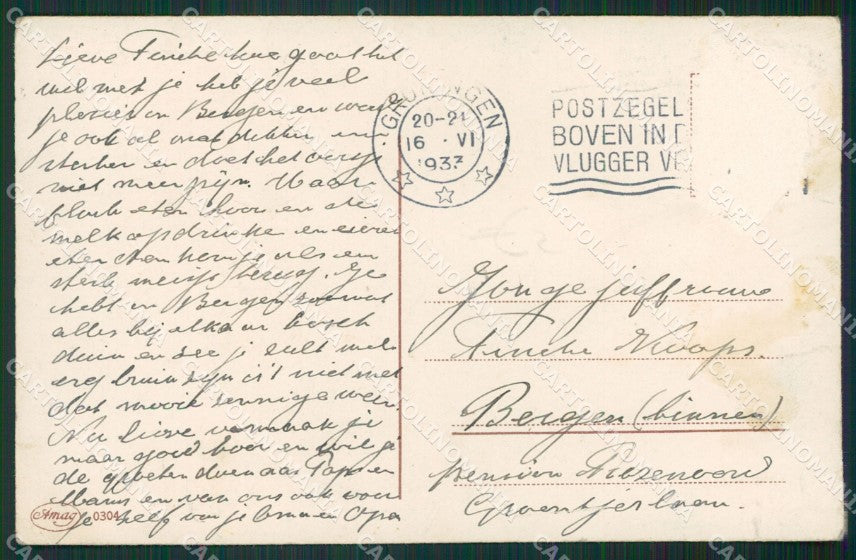 Lieve Tineke hoe gaat het
wel met je heb je veel
plezier in Bergen en word
je ook al wat dikker en
sterker en doet het oortje
niet meer pijn. Maar
flink eten hoor en de
melk opdrinken en eieren
eten dan kom je als een
sterk meisje terug. Je
hebt in Bergen zoowat
alles bij elkaar bosch
duin en zee je zult wel
erg bruin zijn is 't niet met
dat mooie zonnige weer.
Nu lieve vermaak je
maar goed hoor en wil je
de groeten doen aan Paps en
Mams en van ons ook voor
je zelf van je Oma en Opa
Amag 0304
GRONINGEN
20-21
16 · VI
1937
POSTZEGEL
BOVEN IN
VLUGGER VE
Jonge juffrouw
Tineke Koops.
Bergen (binnen)
pension Rozenoord
CARTOLINOMANIA